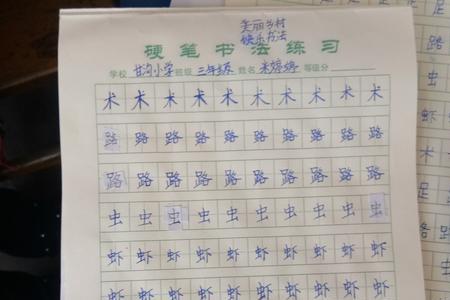 美丽乡村
快乐书法
硬笔书法练习
学校 甘沟小学 班级 三年级 姓名 米婷婷 等级分
术 术 术 术 术 术 术 术 术 术
路 路 路 路 路 路 路 路 路 路
路 路 路 路 路 路 路 路 路 路
虫 虫 虫 虫 虫 虫 虫 虫 虫 虫
虾 虾 虾 虾 虾 虾 虾 虾 虾 虾
虾 虾 虾 虾 虾 虾 虾 虾 虾 虾
足
路
虫
虾
术
足
路
虫